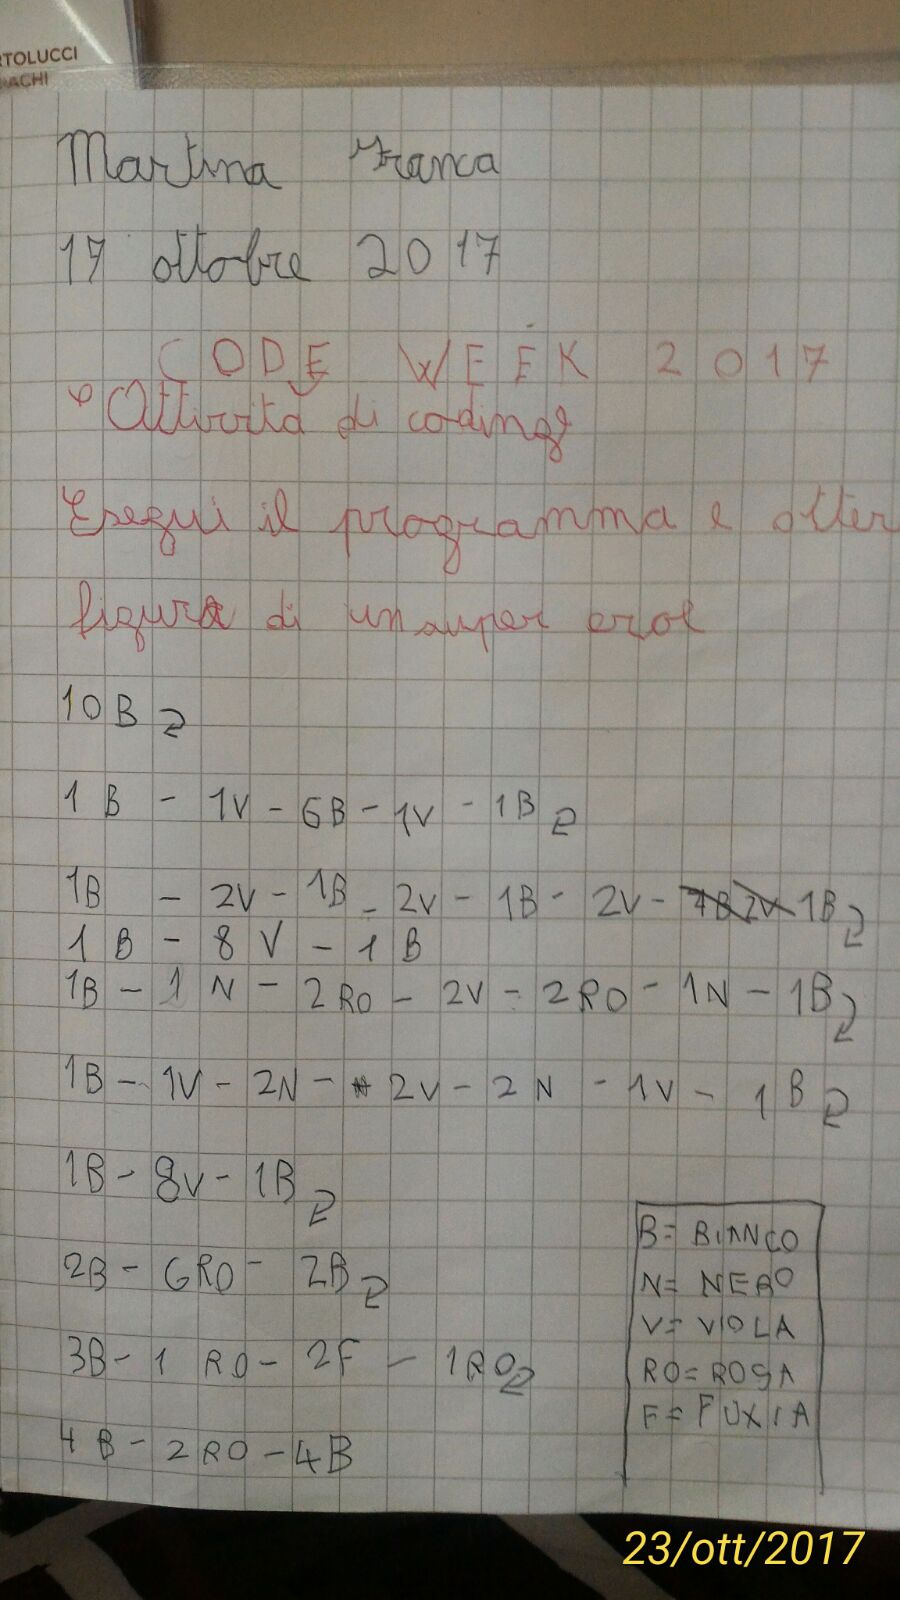 RTOLUCCI
ACHI
Martina Franca
17 ottobre 2017
CODE WEEK 2017
Attività di coding
Esegui il programma e otter
figura di un super eroe
10B
1B - 1V - 6B - 1V - 1B
1B - 2V - 1B - 2V - 1B - 2V - 1B
1B - 8V - 1B
1B - 1N - 2RO - 2V - 2RO - 1N - 1B
1B - 1V - 2N - 2V - 2N - 1V - 1B
1B - 8V - 1B
2B - 6RO - 2B
3B - 1RO - 2F - 1RO
4B - 2RO - 4B
B= BIANCO
N= NERO
V= VIOLA
RO= ROSA
F= FUXIA
23/ott/2017